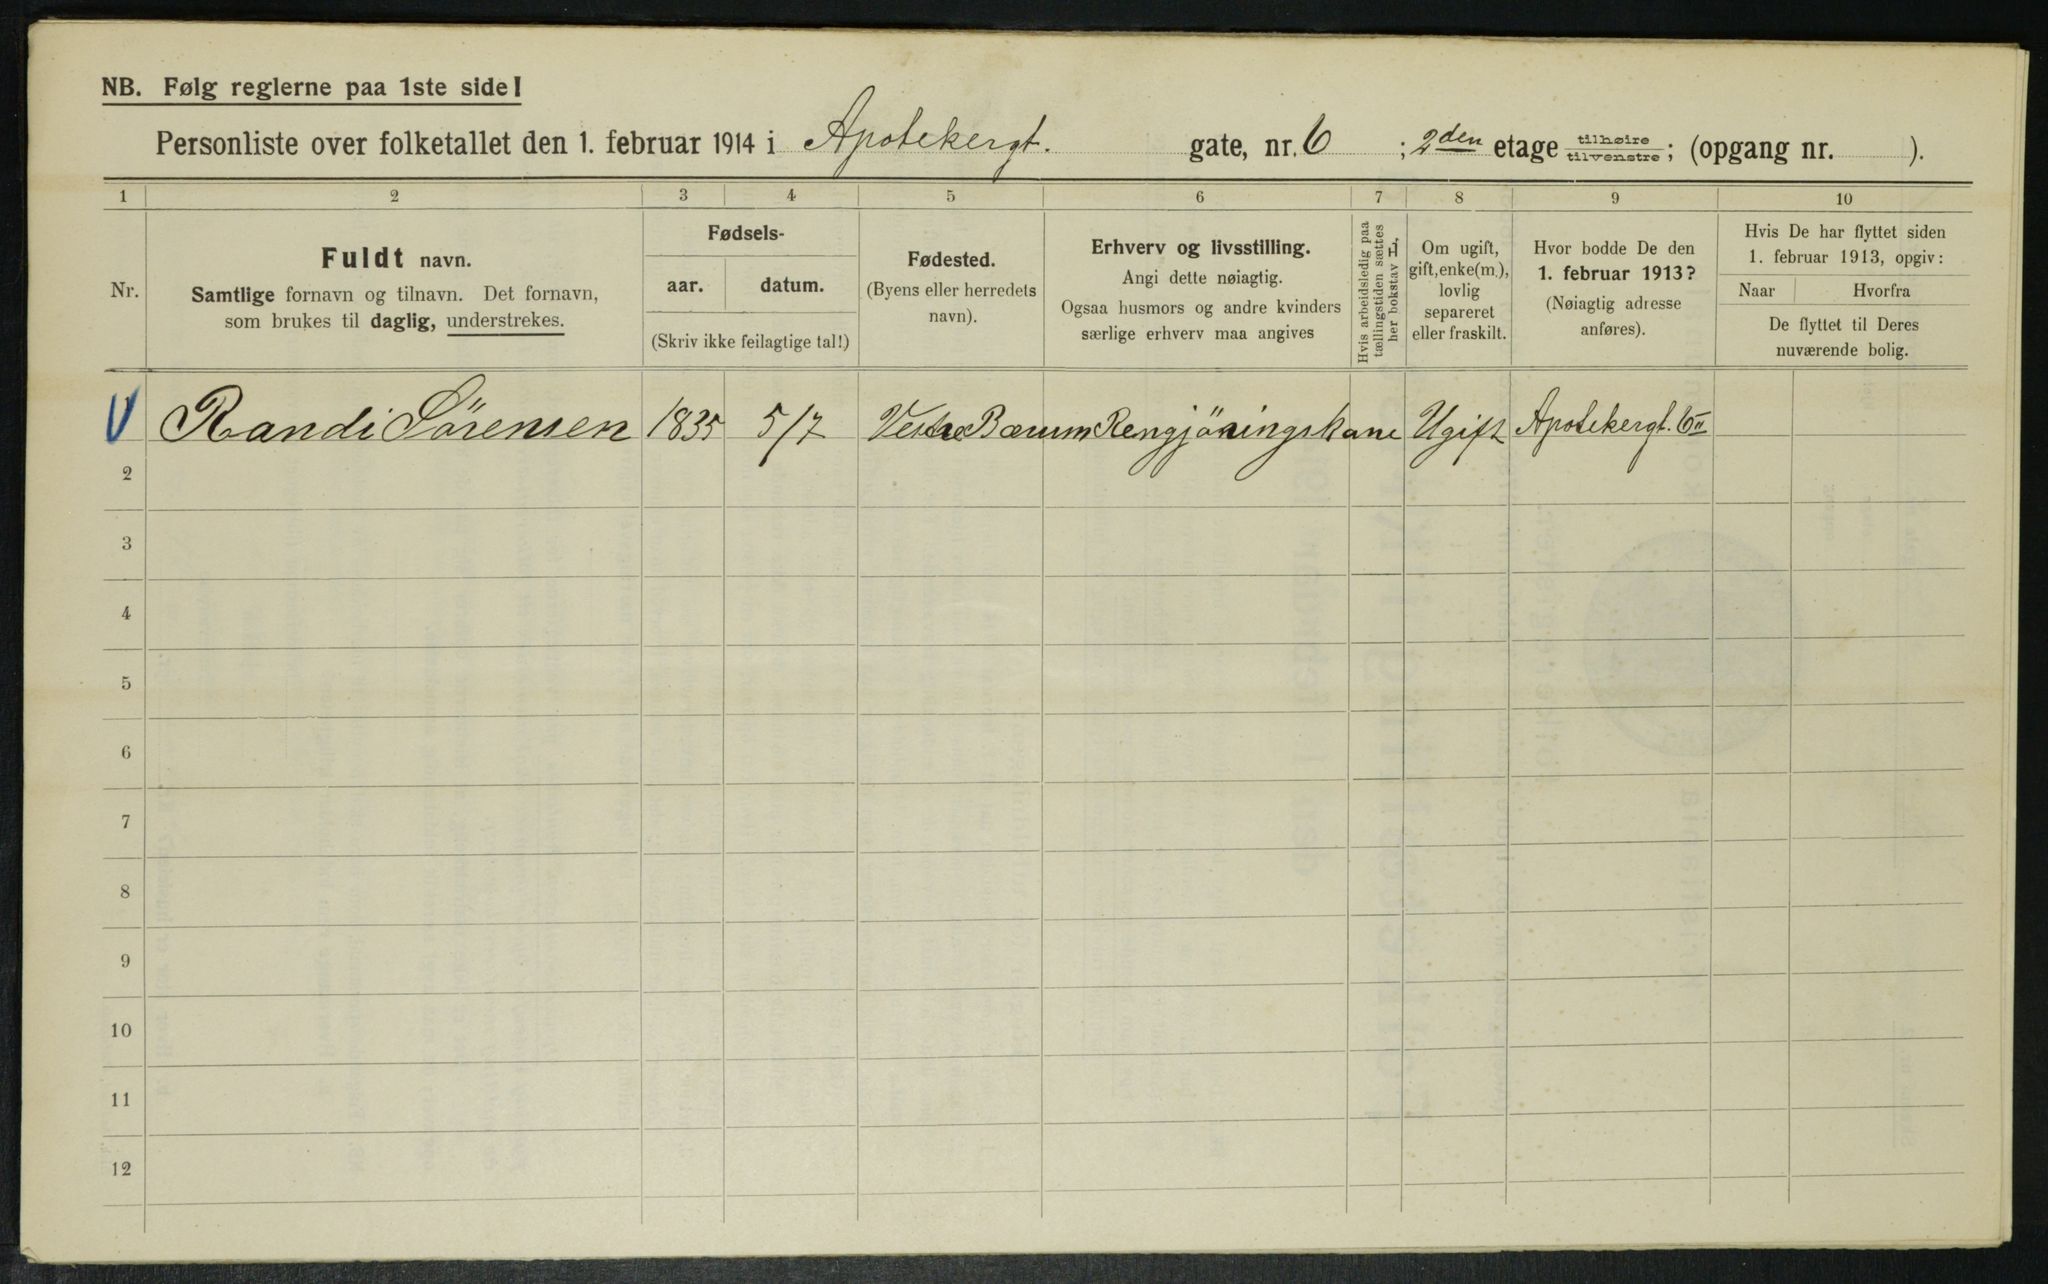 NB. Følg reglerne paa 1ste side!
Personliste over folketallet den 1. februar 1914 i Apotekergt. gate, nr. 6 ; 2den etage tilhøire tilvenstre; (opgang nr. ).
1 2 3 4 5 6 7 8 9 10
Nr.
Fuldt navn.
Samtlige fornavn og tilnavn. Det fornavn,
som brukes til daglig, understrekes.
Fødsels-
aar. datum.
(Skriv ikke feilagtige tal!)
Fødested.
(Byens eller herredets
navn).
Erhverv og livsstilling.
Angi dette nøiagtig.
Ogsaa husmors og andre kvinders
særlige erhverv maa angives
Hvis arbeidsledig paa
tællingstiden sættes
her bokstav L.
Om ugift,
gift, enke(m.),
lovlig
separeret
eller fraskilt.
Hvor bodde De den
1. februar 1913?
(Nøiagtig adresse
anføres).
Hvis De har flyttet siden
1. februar 1913, opgiv:
Naar Hvorfra
De flyttet til Deres
nuværende bolig.
Randi Sörensen 1835 5/7 Vestre Bærum Rengjöringskone Ugift Apotekergt. 6 II
2
3
4
5
6
7
8
9
10
11
12